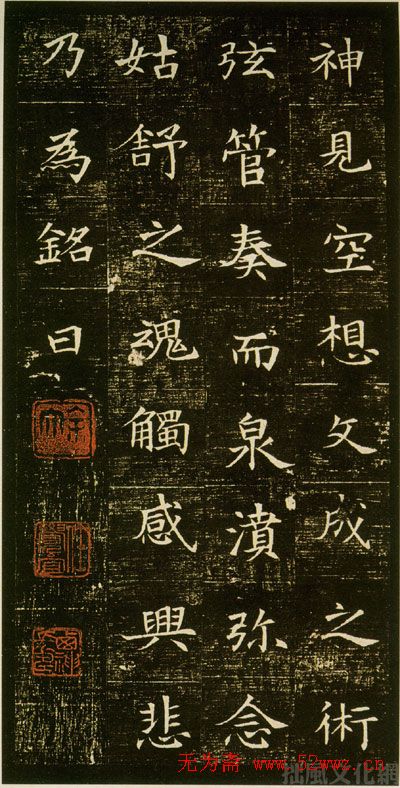 神見空想文成之術
弦管奏而泉濆弥念
姑舒之魂觸感興悲
乃為銘曰
无为斋 www.52wwz.cn
拙風文化網